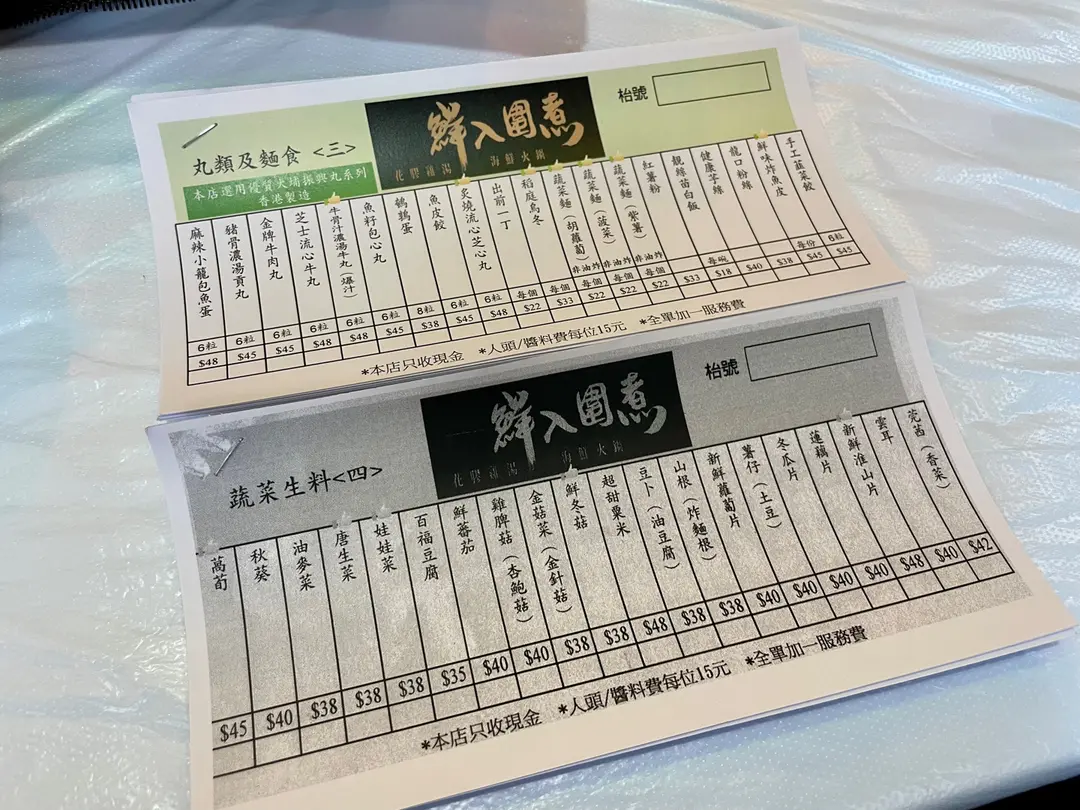 鮮入圍煮
花膠雞湯 海鮮火鍋
枱號
丸類及麵食 <三>
本店選用優質大埔振興丸系列
香港製造
麻辣小籠包魚蛋 6粒 $48
豬骨濃湯貢丸 6粒 $45
金牌牛肉丸 6粒 $45
芝士流心牛丸 6粒 $48
牛骨汁濃湯牛丸（爆汁） 6粒 $48
魚籽包心丸 6粒 $45
鵪鶉蛋 6粒 $38
魚皮餃 6粒 $45
炙燒流心芝心丸 6粒 $48
出前一丁 每個 $22
稻庭烏冬 每個 $33
蔬菜麵（胡蘿蔔） 非油炸 每個 $22
蔬菜麵（菠菜） 非油炸 每個 $22
蔬菜麵（紫薯） 非油炸 每個 $22
紅薯粉 $33
靚綠苗白飯 每碗 $18
健康芋絲 $40
龍口粉絲 $38
鮮味炸魚皮 每份 $45
手工韮菜餃 6粒 $45
*本店只收現金 *人頭/醬料費每位15元 *全單加一服務費
鮮入圍煮
花膠雞湯 海鮮火鍋
枱號
蔬菜生料<四>
萵荀 $45
秋葵 $40
油麥菜 $38
唐生菜 $38
娃娃菜 $38
百福豆腐 $35
鮮蕃茄 $40
雞脾菇（杏鮑菇） $40
金菇菜（金針菇） $38
鮮冬菇 $38
超甜粟米 $48
豆卜（油豆腐） $38
山根（炸麵根） $38
新鮮蘿蔔片 $40
薯仔（土豆） $40
冬瓜片 $40
蓮藕片 $40
新鮮淮山片 $48
雲耳 $40
芫茜（香菜） $42
*本店只收現金 *人頭/醬料費每位15元 *全單加一服務費